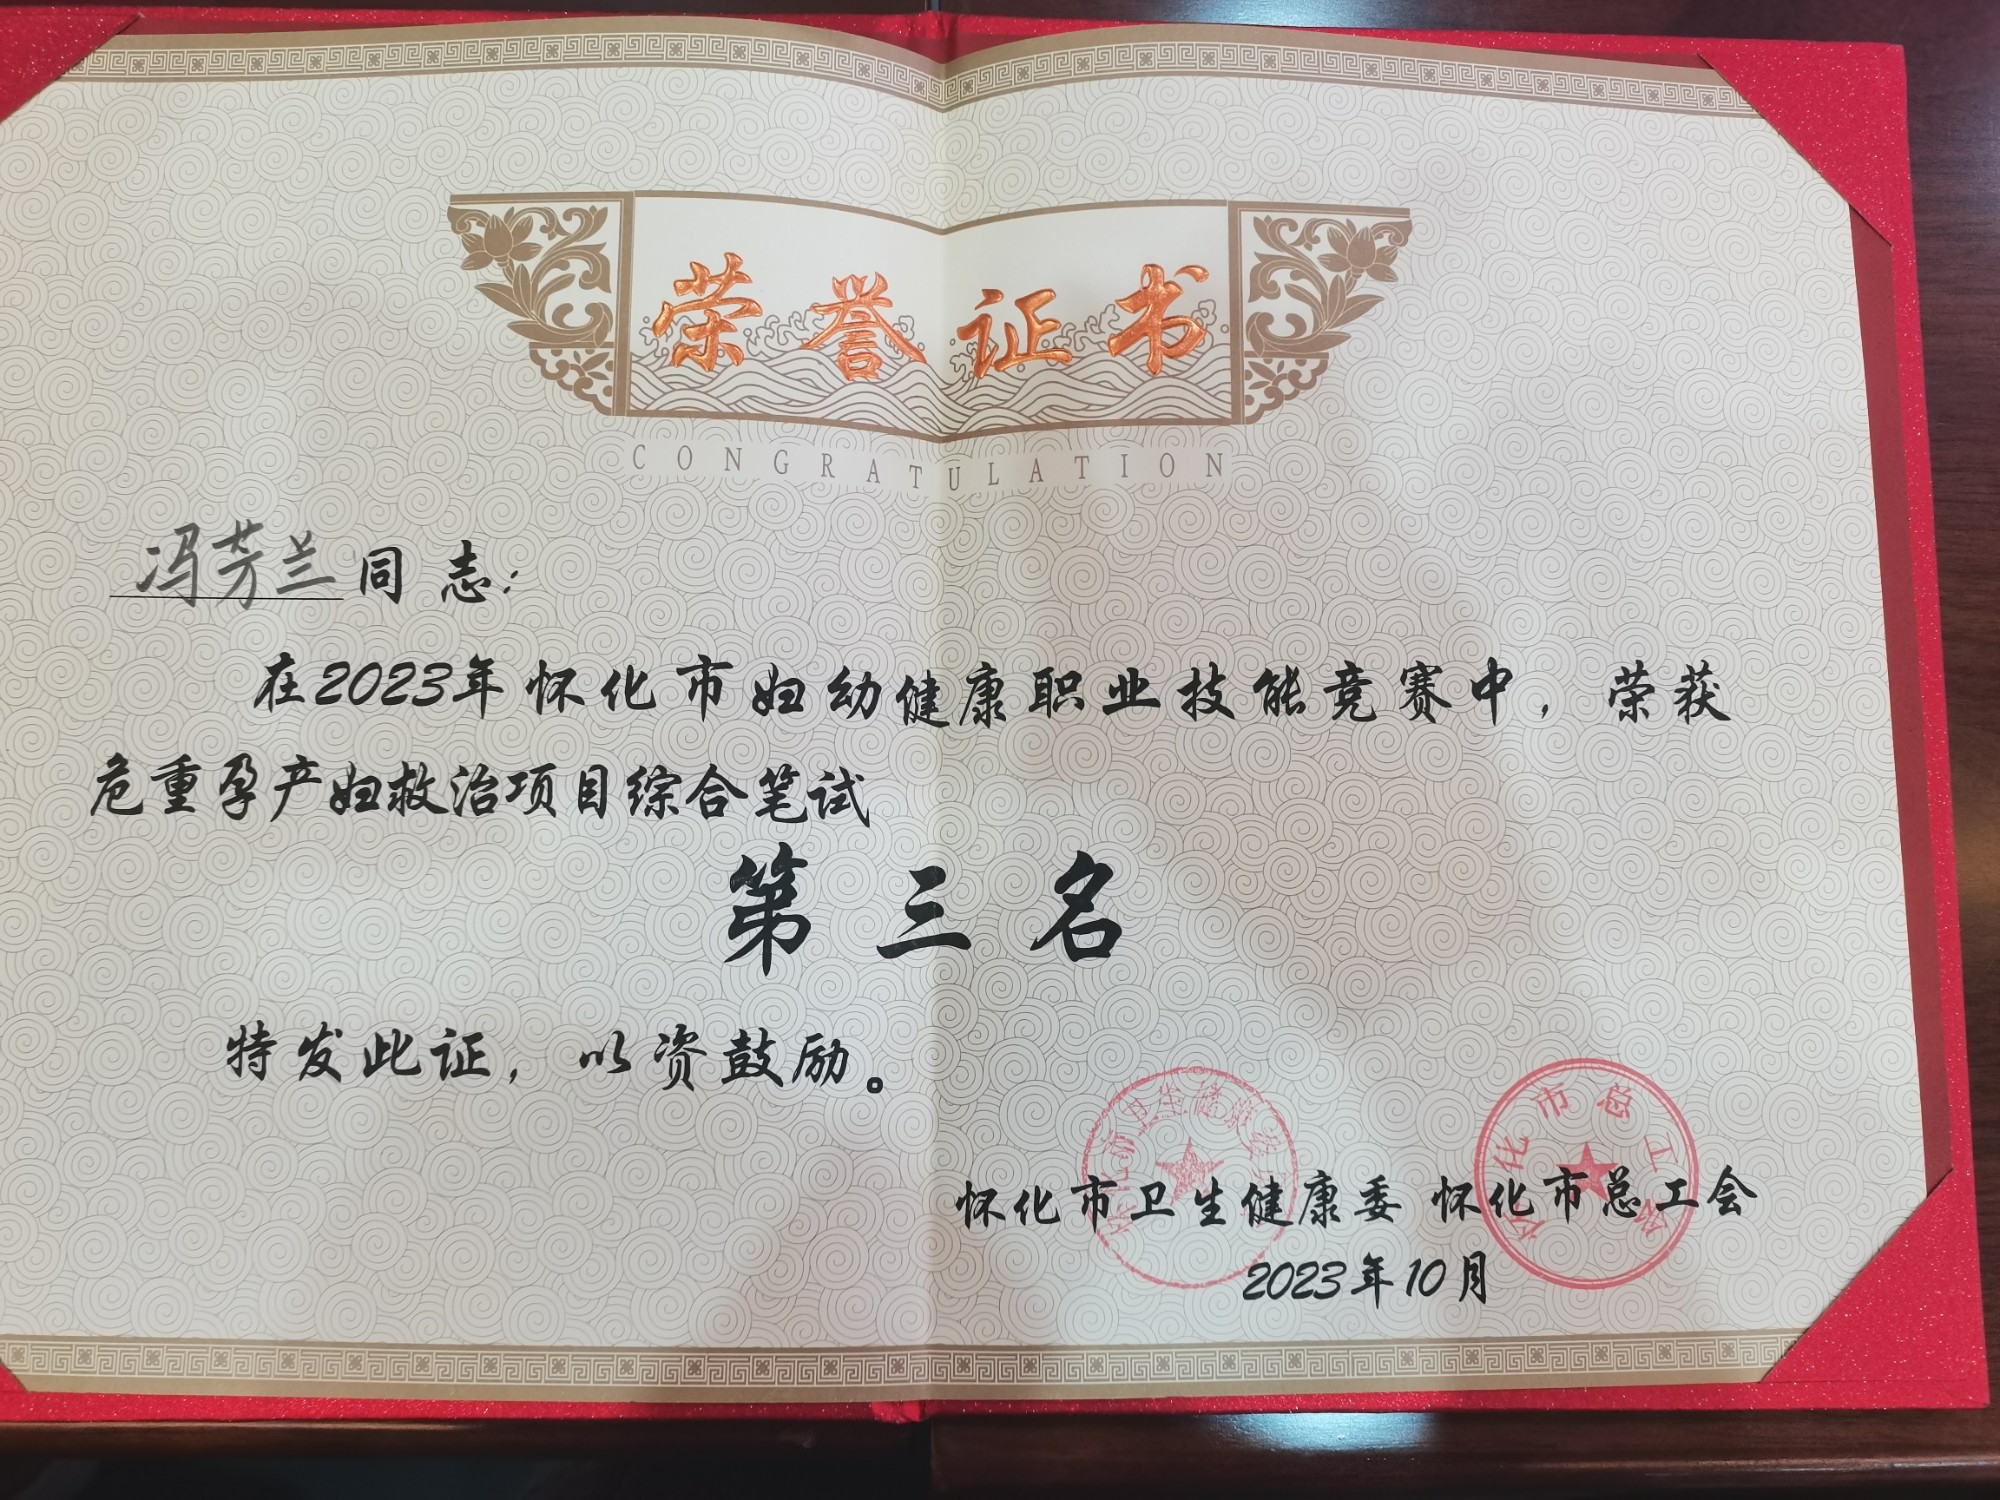 荣誉证书
CONGRATULATION
冯芳兰同志：
在2023年怀化市妇幼健康职业技能竞赛中，荣获
危重孕产妇救治项目综合笔试
第三名
特发此证，以资鼓励。
怀化市卫生健康委 怀化市总工会
2023年10月
化市卫生健康委
怀化市总工会